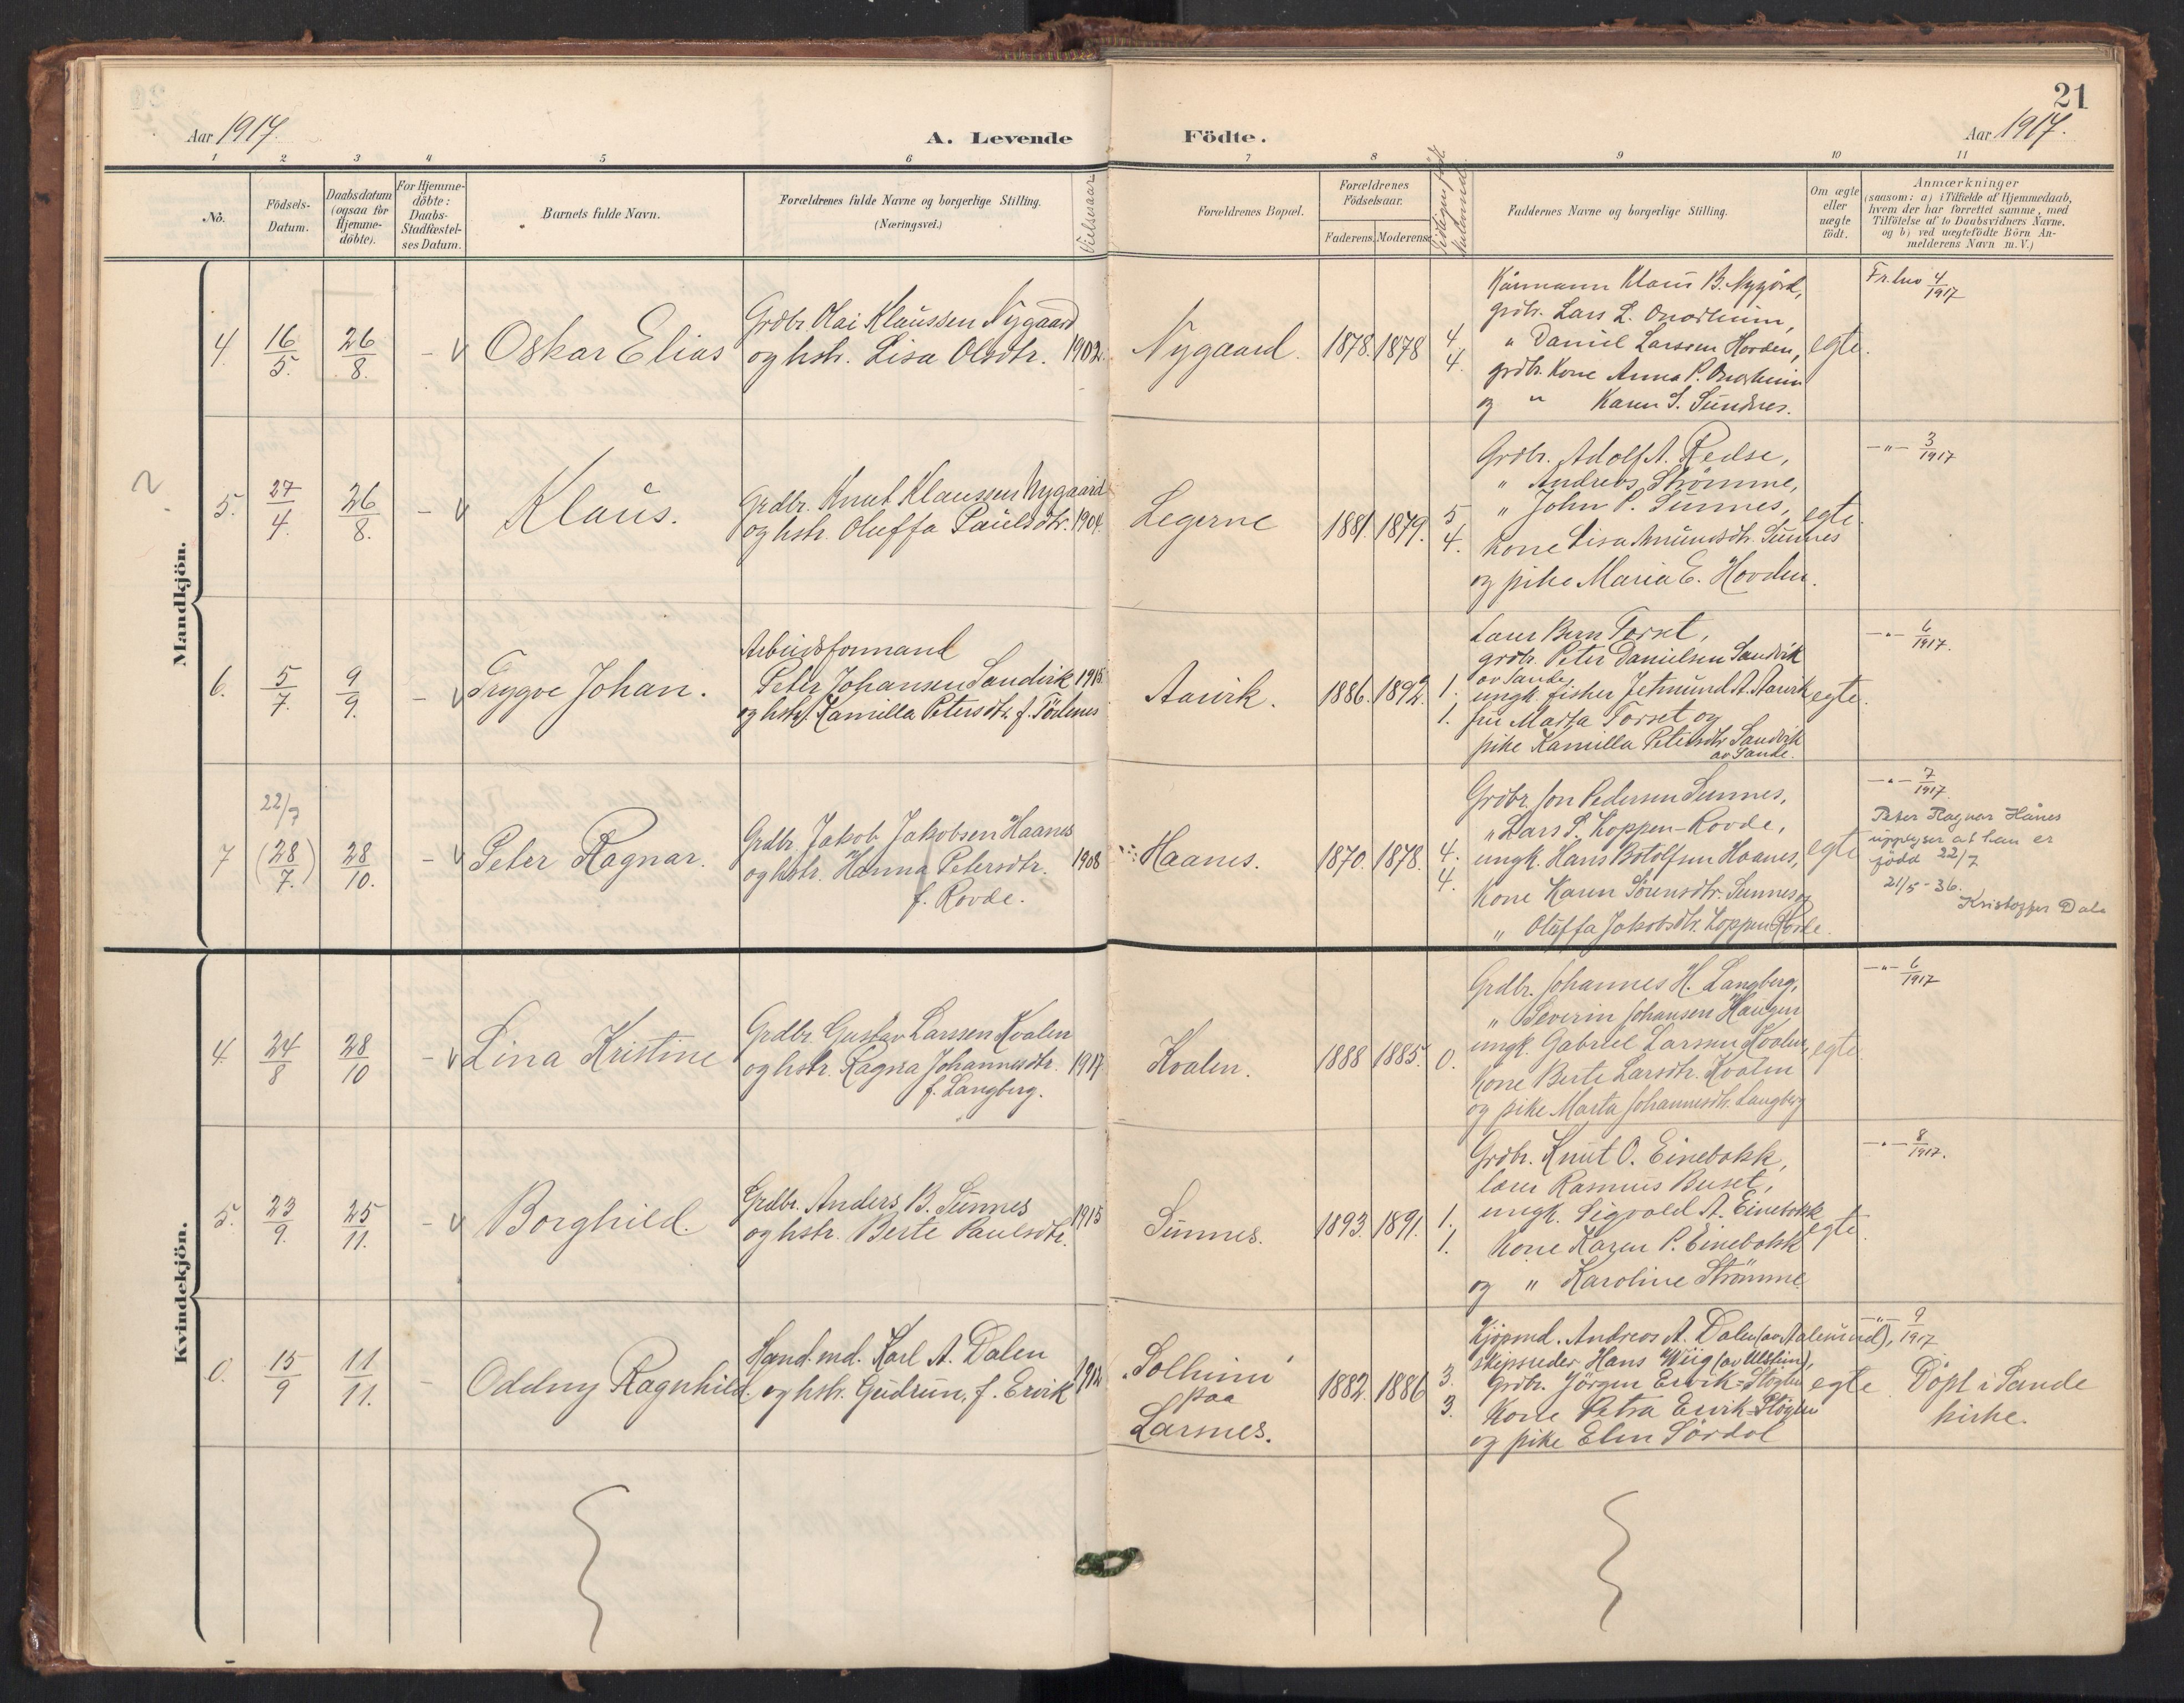 21
Aar 1917.
A. Levende
Födte.
Aar 1917.
1 2 3 4 5 6 7 8 9 10 11
No.
Födsels-
Datum.
Daabsdatum
(ogsaa for
Hjemme-
döbte).
For Hjemme-
döbte:
Daabs-
Stadfæstel-
ses Datum.
Barnets fulde Navn.
Forældrenes fulde Navne og borgerlige Stilling.
(Næringsvei.)
Vielsesaar
Forældrenes Bopæl.
Forældrenes
Födselsaar.
Faderens. Moderens.
Faddernes Navne og borgerlige Stilling.
Om ægte
eller
uægte
födt.
Anmærkninger
(saasom: a) i Tilfælde af Hjemmedaab,
hvem der har forrettet samme, med
Tilföielse af to Daabsvidners Navne,
og b) ved uægtefödte Börn An-
melderens Navn m. V.)
Mandkjön.
4. 16/5. 26/8. - v Oskar Elias
Grdbr. Olai Klaussen Nygaard
og hstr. Lisa Olsdtr. 1902.
Nygaard. 1878. 1878 4. 4.
Kårmann Klaus B. Nygård,
grdbr. Lars L. Onarheim,
" Daniel Larssen Hovden,
grdbr. kone Anna P. Onarheim
og " Karen S. Sundnes.
egte.
Fr. lno 4/1917
5. 27/4. 26/8. - v Klaus.
Grdbr. Knut Klaussen Nygaard
og hstr. Oluffa Paulsdtr. 1904.
Legerne 1881. 1879. 5 4.
Grdbr. Adolf A. Redse,
" Andreas Strömme,
" John P. Sunnes,
kone Lisa Amundsdtr. Sunnes
og pike Maria E. Hovden.
egte.
-"- 3/1917
6. 5/7. 9/9. - v Tryggve Johan.
Arbeidsformand
Peter Johansen Sandvik 1915.
og hstr. Kamilla Petersdtr. f.
Aarvik. 1886. 1892. 1. 1.
Lærer Bern Forset,
grdbr. Peter Danielsen Sandvik
av Sande,
ungk. fisker Jetmund A. Aarvik
fru Marta Forset og
pike Kamilla Petersdtr. Sandvik
av Sande.
egte.
-"- 6/1917.
7 22/7 (28/7.) 28/10. - v Peter Ragnar.
Grdbr. Jakob Jakobsen Haanes
og hstr. Hanna Petersdtr. 1908
f. Rovde.
Haanes. 1870. 1878. 4. 4.
Grdbr. Jon Pedersen Sunnes,
" Lars P. Koppen-Rovde,
ungk. Hans Botolfsen Haanes,
kone Karen Sörensdtr. Sunnes og
" Oluffa Jakobsdtr. Koppen Rovde.
egte
-"- 7/1917.
Peter Ragnar Hånes
upplyser at han er
född 22/7
21/5-36.
Kristoffer Dale
Kvindekjön.
4. 24/8 28/10 - v Lina Kristine
Grdbr. Gustav Larssen Kvalen
og hstr. Ragna Johannesdtr. 1917
f. Langberg.
Kvalen. 1888 1885. 0.
Grdbr. Johannes H. Langberg,
" Severin Johansen Haugen
ungk. Gabriel Larssen Kvalen,
kone Berte Larsdtr. Kvalen
og pike Marta Johannesdtr. Langberg
egte.
-"- 6/1917
5. 23/9. 25/11. - v Borghild.
Grdbr. Anders B. Sunnes 1915
og hstr. Berte Paulsdtr.
Sunnes. 1893. 1891. 1. 1.
Grdbr. Knut O. Einebokk,
lærer Rasmus Buset,
ungk. Sigvald A. Einebokk
kone Karen P. Einebokk
og " Karoline Strömme
egte.
-"- 8/1917.
0. 15/9 11/11. - Oddny Ragnhild.
Hand.md. Karl A. Dalen 1912
og hstr. Gudrun, f. Ervik
Solheim
paa
Larsnes. 1882. 1886 3. 3.
Kjöpmd. Andreas A. Dalen (av Aalesund),
skipsreder Hans Wiig (av Ulstein),
Grdbr. Jörgen Ervik
kone Petra Ervik
og pike Elen Sördal
egte.
-"- 9/1917
Döpt i Sande
kirke.